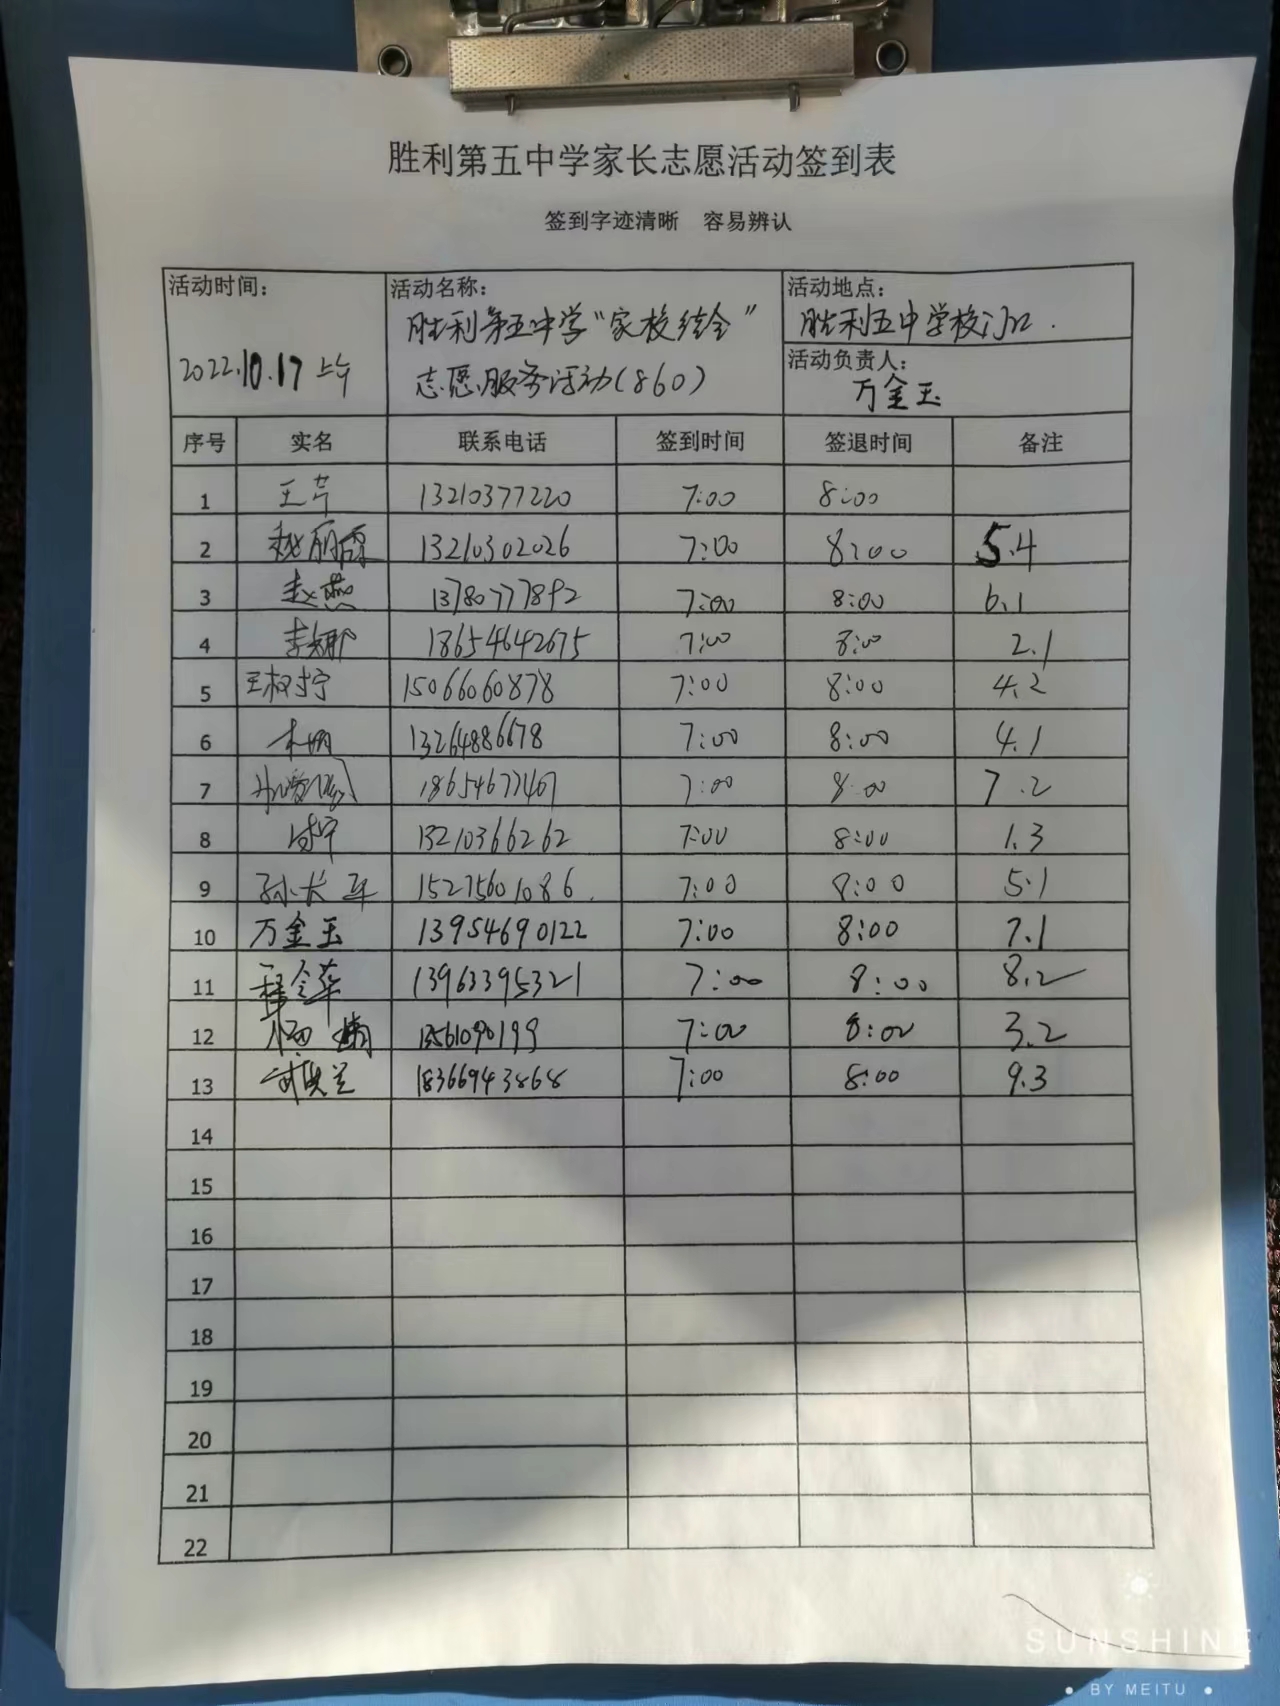 胜利第五中学家长志愿活动签到表
签到字迹清晰 容易辨认
活动时间: 活动名称: 活动地点:
胜利第五中学“家校结合” 胜利五中学校门口.
2022.10.17 上午 志愿服务活动(860) 活动负责人:
万金玉
序号 实名 联系电话 签到时间 签退时间 备注
1 王芹 13210377220 7:00 8:00
2 13210302026 7:00 8:00 5.4
3 赵燕 13780777892 7:00 8:00 6.1
4 李娜 18654642675 7:00 8:00 2.1
5 15066060878 7:00 8:00 4.2
6 13264886678 7:00 8:00 4.1
7 18654677467 7:00 8:00 7.2
8 13210366262 7:00 8:00 1.3
9 孙长军 15275601086. 7:00 8:00 5.1
10 万金玉 13954690122 7:00 8:00 7.1
11 13963395321 7:00 8:00 8.2
12 7:00 8:00 3.2
13 18366943868 7:00 8:00 9.3
14
15
16
17
18
19
20
21
22
SUNSHINE
• BY MEITU •